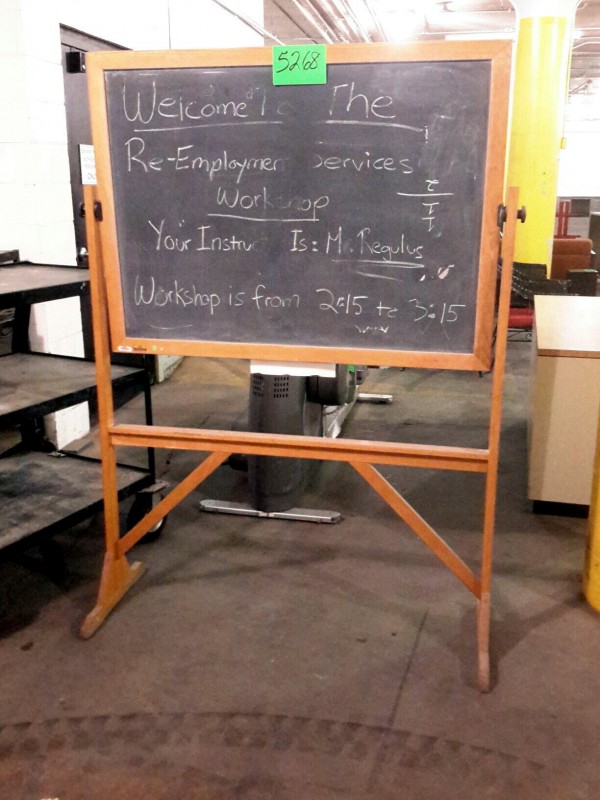 5268
Welcome To The
Re-Employmen Services
Workshop
Your Instru Is: M. Regulus
Workshop is from 2:15 to 3:15